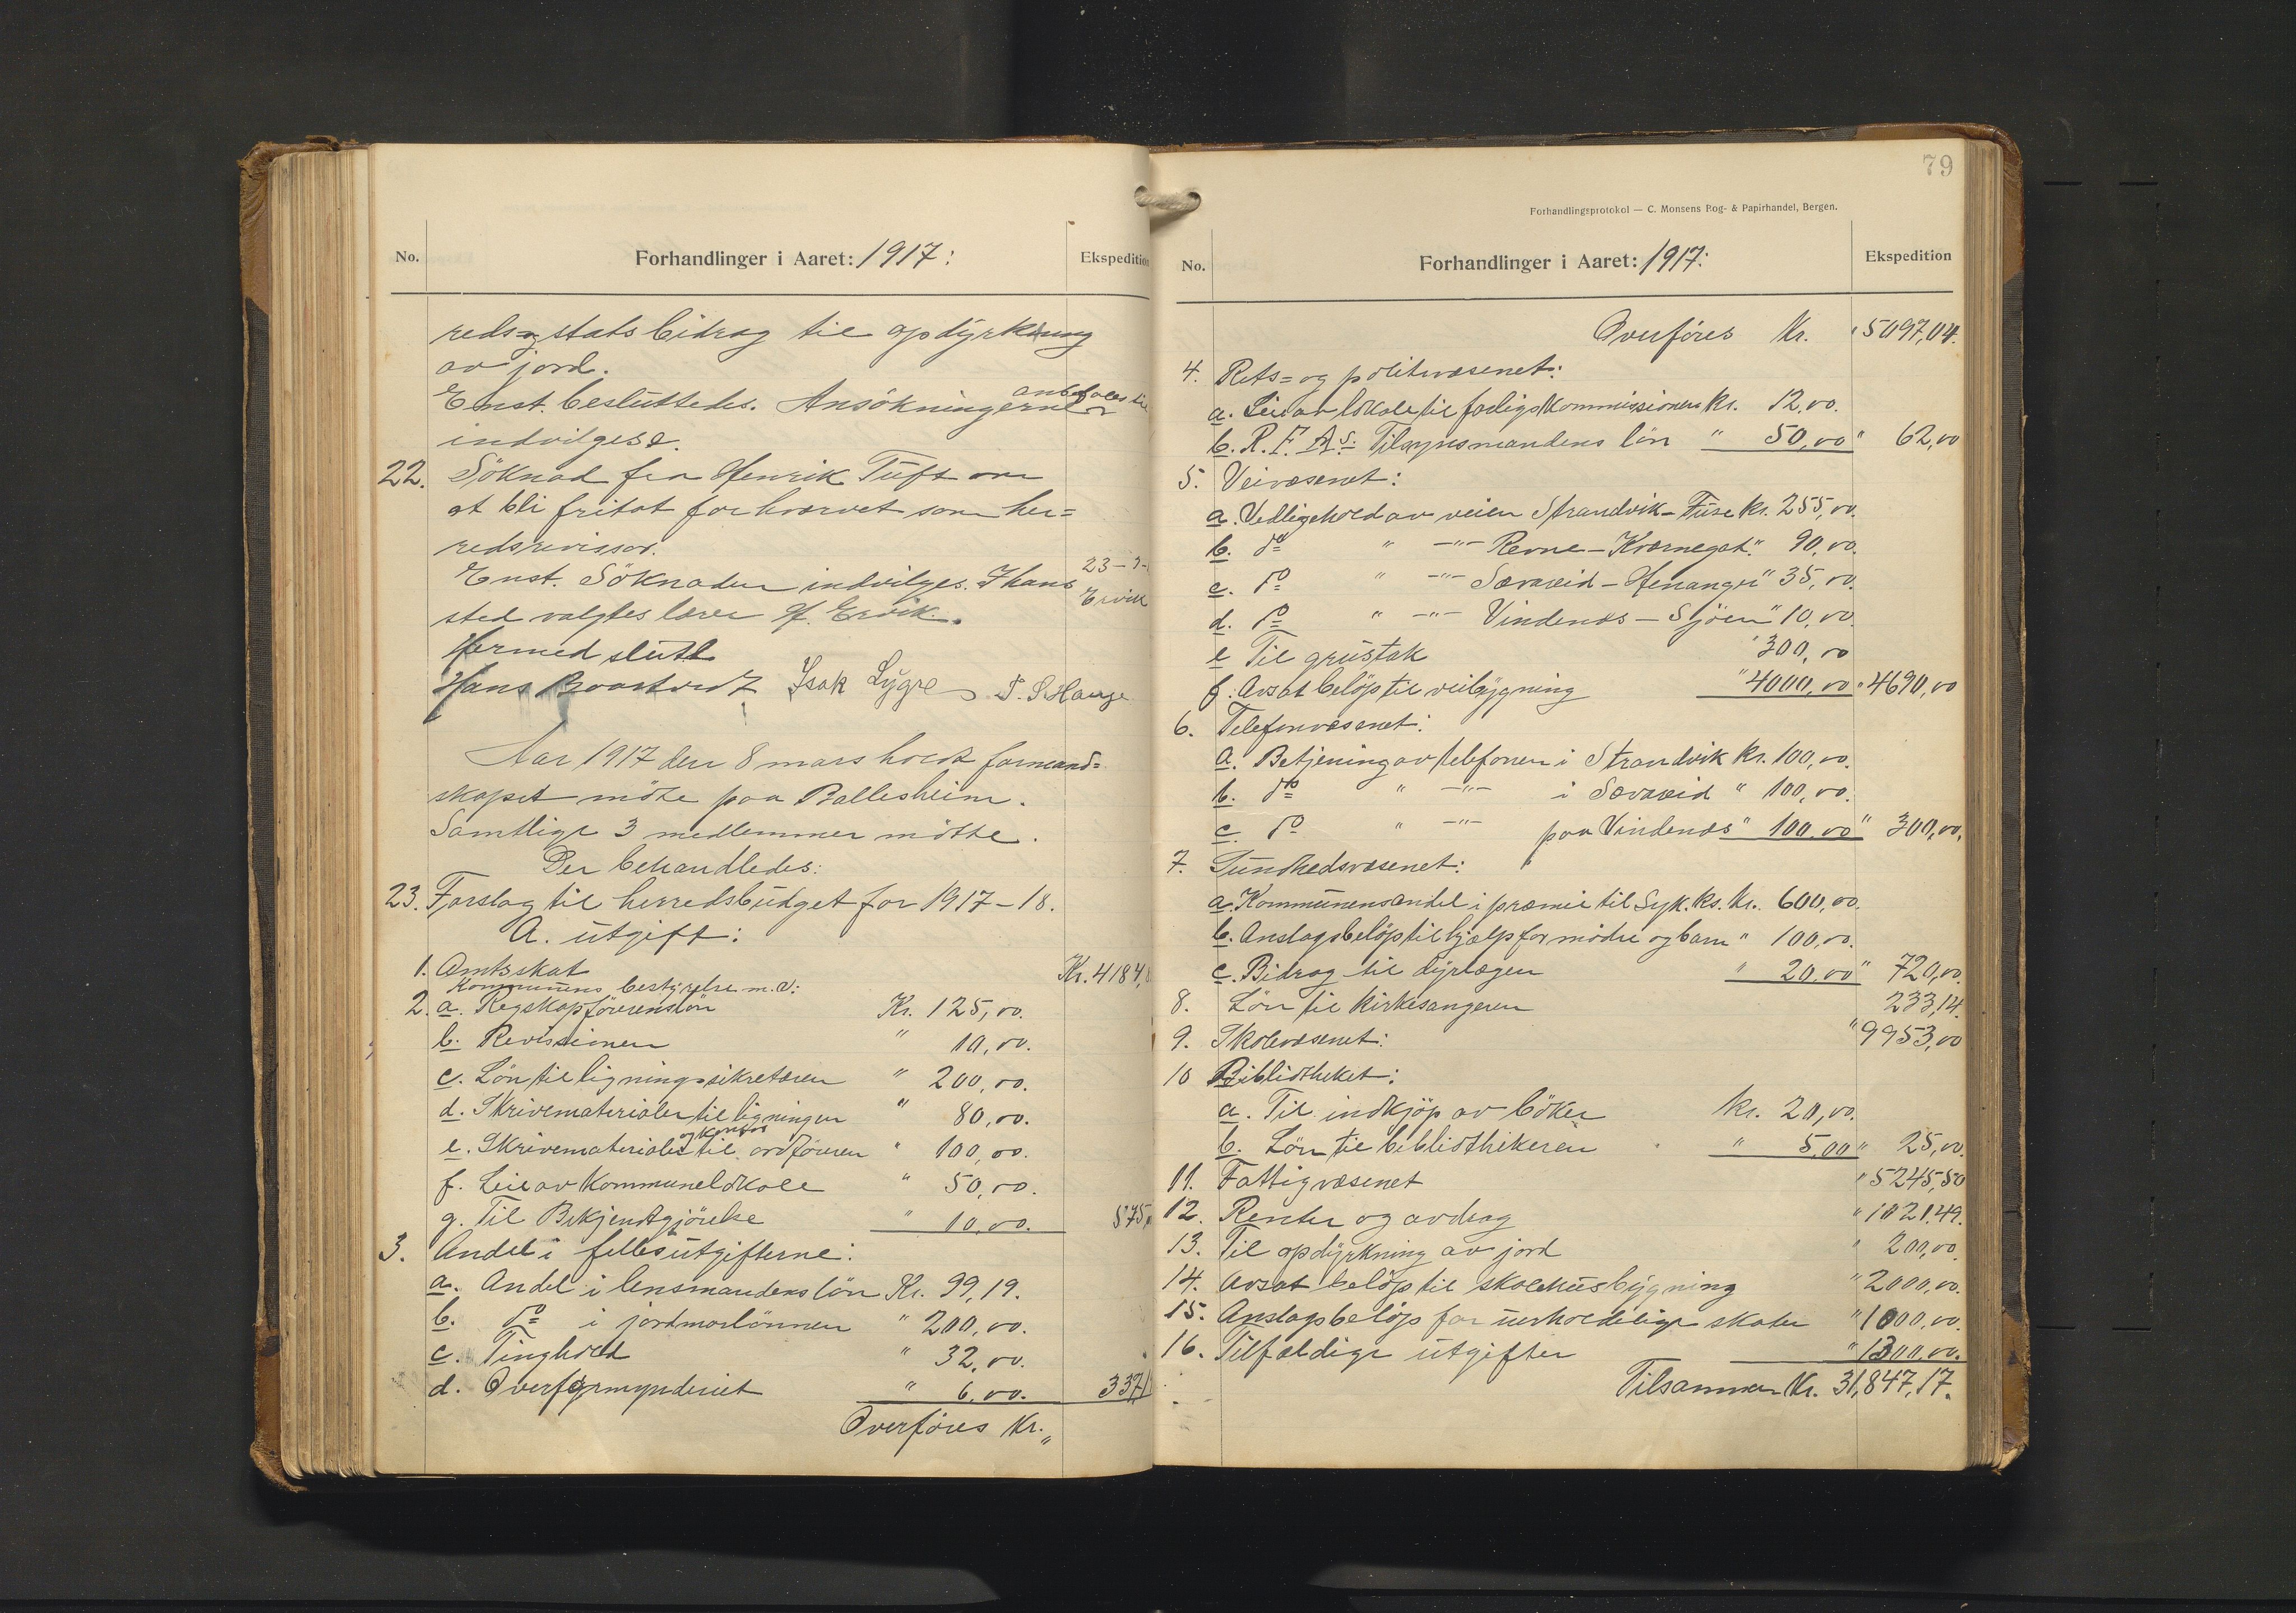 No.
Forhandlinger i Aaret: 1917:
Ekspedition
reds- og statsbidrag til opdyrkning
av jord.
Enst. besluttedes. Ansökningerne anbefales til
indvilgese.
22. Söknad fra Henrik Tuft om
at bli fritat for hvervet som her=
redsrevissor.
Enst. Söknaden indvilges. I hans 23-3-
sted valgtes lærer H. Ervik. Ervik
Hermed slutt
Hans Isak Lygre T. S. Hauge
Aar 1917 den 8 mars holdt formand=
skapet möte paa Ballesheim.
Samtlige 3 medlemmer mötte.
Der behandledes:
23. Forslag til herredsbudget for 1917-18.
A. utgift:
1. Amtsskat Kr. 4184,
Kommunens bestyrelse m.v:
2. a. Regskapsförerens lön Kr. 125,00.
b. Revissionen " 10,00.
c. Lön til ligningssekretæren " 200,00.
d. Skrivematerialer til ligningen " 80,00.
e. Skrivematerialer og kontor til ordföreren " 100,00.
f. Leie av Kommunelokale " 50,00.
g. Til Bekjendtgjörelse " 10,00. 575,
3. Andel i fellesutgifterne:
a. Andel i lensmandens lön Kr. 99,19.
b. do i jordmorlönnen " 200,00.
c. Tinghold " 32,00.
d. Overformynderiet " 6,00. 337,1
Overföres Kr. "
79
Forhandlingsprotokol — C. Monsens Bog- & Papirhandel, Bergen.
No.
Forhandlinger i Aaret: 1917:
Ekspedition
Overföres Kr. 5097,04.
4. Rets= og politivæsenet:
a. Leie av lokale til forligskommissionen Kr. 12,00.
b. R. F. A s. Tilsynsmandens lön " 50,00 " 62,00
5. Veivæsenet:
a. Vedligehold av veien Strandvik - Fuse kr. 255,00.
b. do " -"- Revne - Kværnegot " 90,00.
c. do " -"- Sævareid - Henanger " 35,00.
d. do " -"- Vindenes - Sjöen " 10,00.
e Til grustak " 300,00
f. Avsat belöp til veibygning " 4000,00 " 4690,00
6. Telefonvæsenet:
a. Betjening av telefonen i Strandvik kr. 100,00.
b. do " -"- i Sævareid " 100,00.
c. do " -"- paa Vindenes " 100,00 " 300,00.
7. Sundhedsvæsenet:
a. Kommunens andel i præmie til Syk. ks. Kr. 600,00.
b. Anslagsbelöp til hjælp for mödre og barn " 100,00.
c. Bidrag til dyrlægen " 20,00 " 720,00.
8. Lön til kirkesangeren 233,14.
9. Skolevæsenet: " 9953,00
10 Bibliotheket:
a. Til indkjöp av böker kr. 20,00.
b. Lön til bibliothikeren " 5,00 " 25,00.
11. Fattigvæsenet " 5245,50
12. Renter og avdrag " 1021,49.
13. Til opdyrkning av jord " 200,00.
14. Avsat belöp til skolehusbygning " 2000,00.
15. Anslagsbelöp for uerholdelige skater " 1000,00.
16. Tilfældige utgifter " 1300,00.
Tilsammen Kr. 31,847,17.